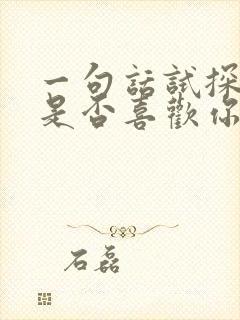 一句話試探
是否喜歡你
石磊